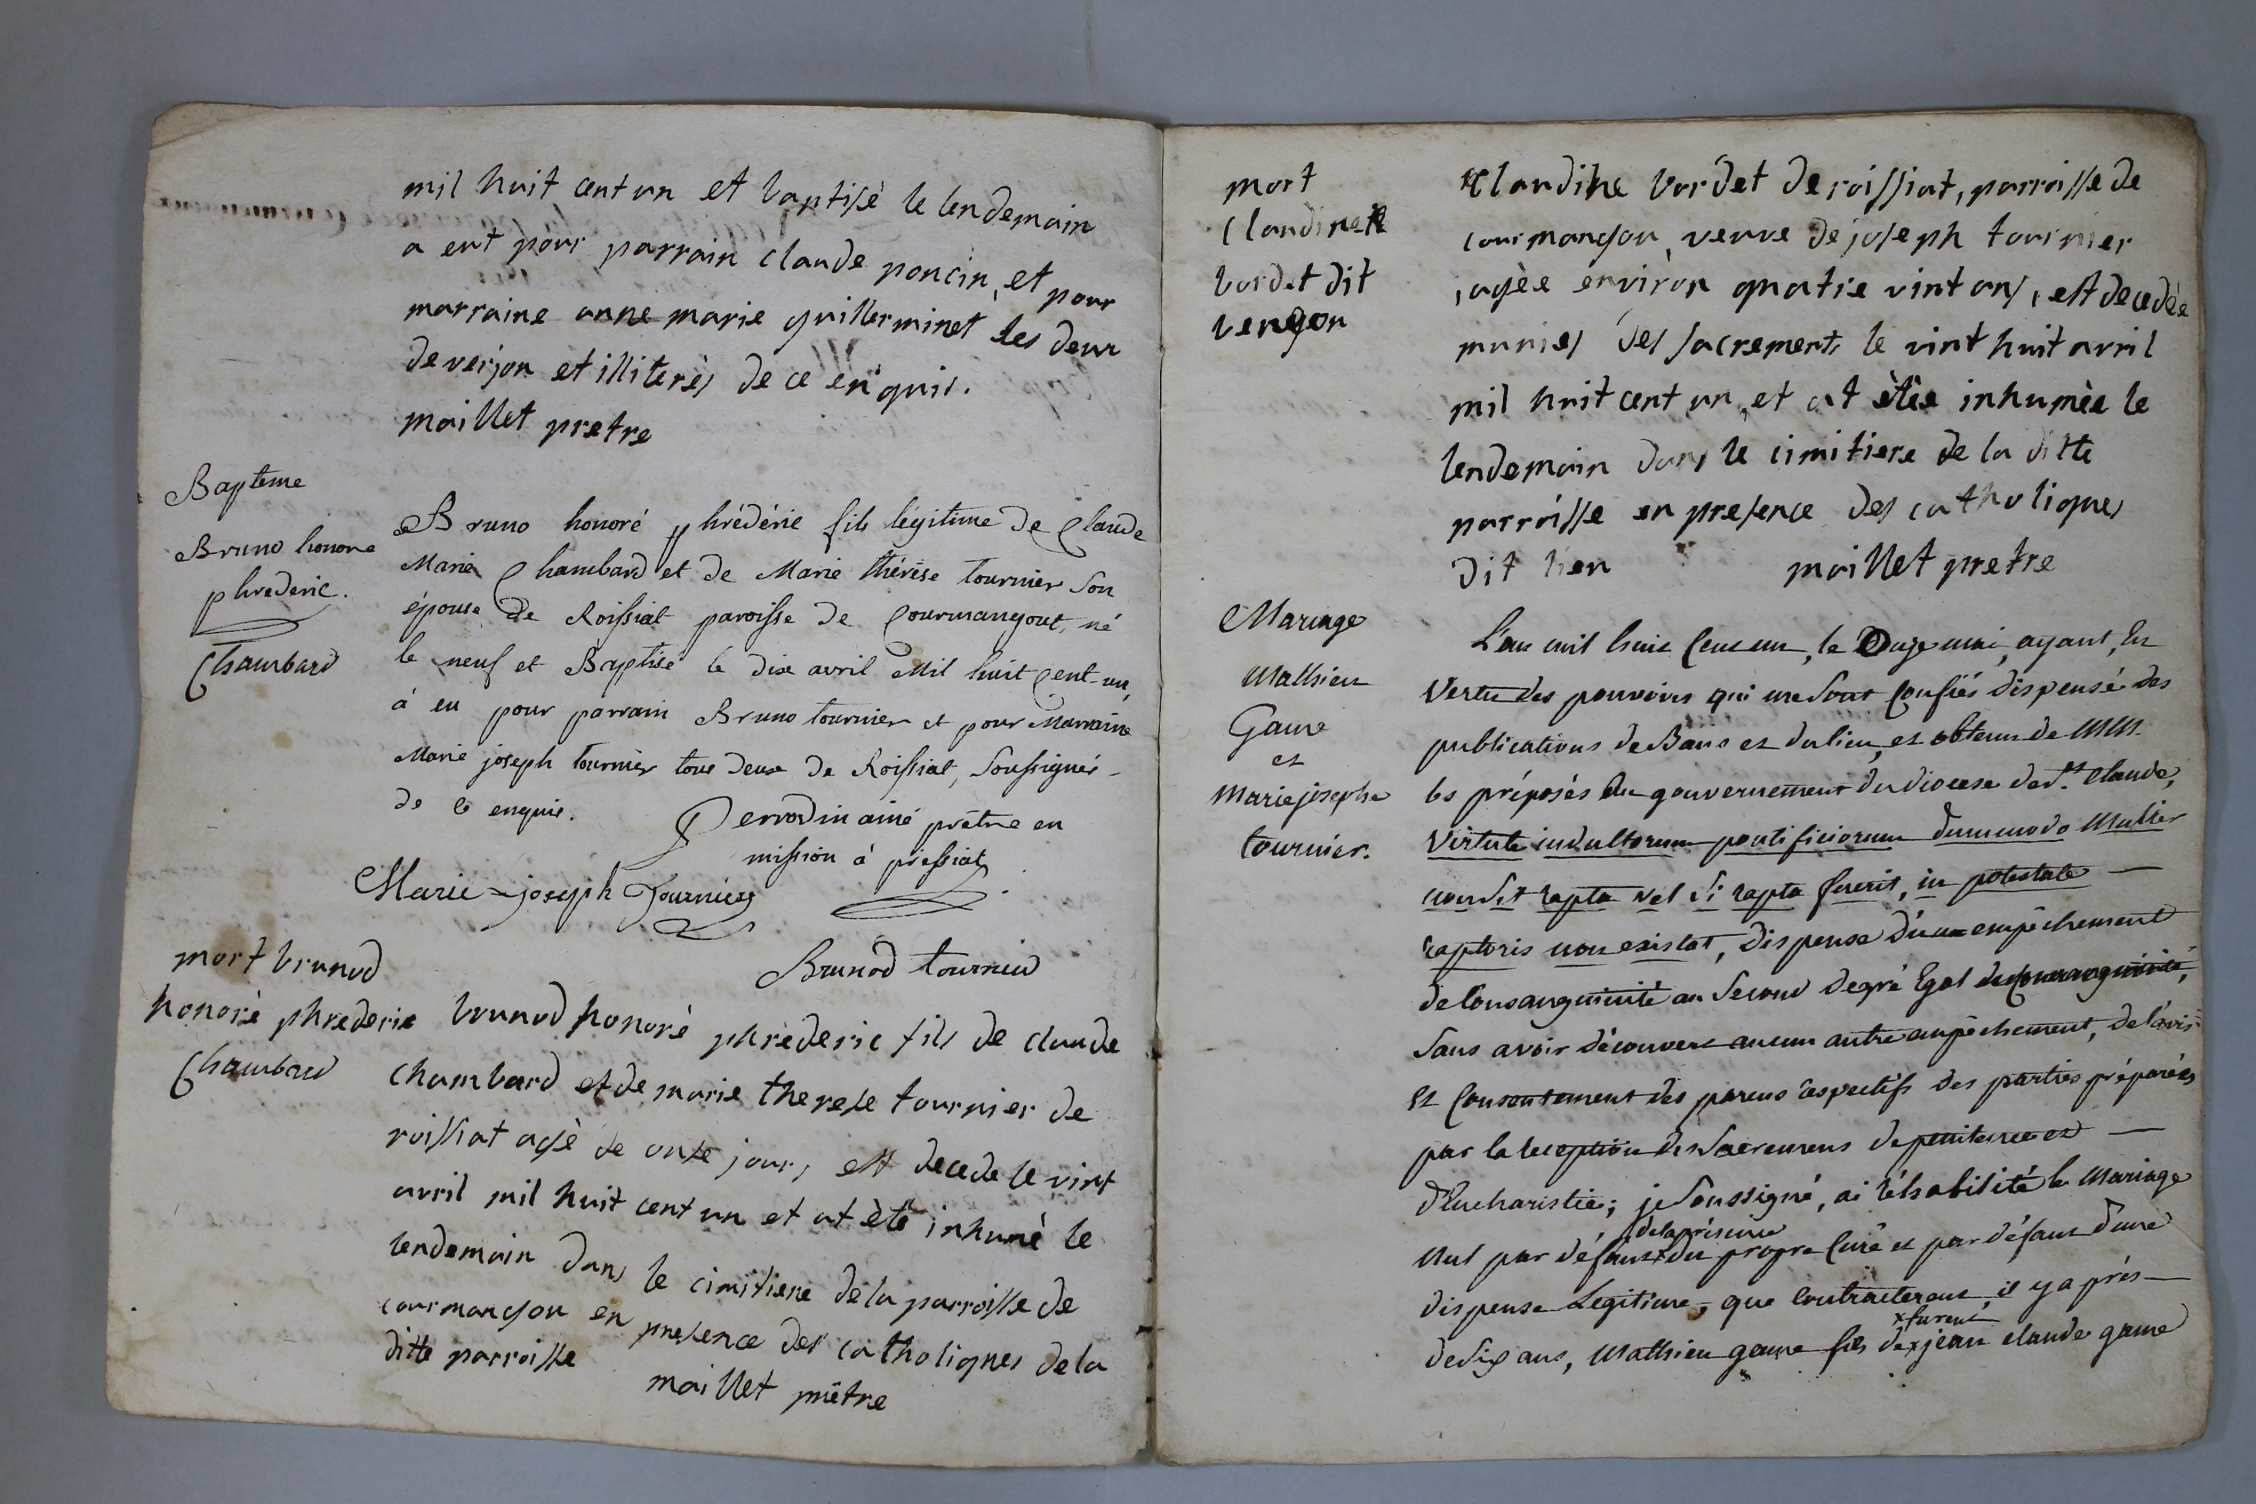 mil huit cent un et baptisè le lendemain
a eut pour parrain claude poncin, et pour
marraine anne marie guillerminet les deux
de verjon et illiterès de ce enquis.
maillet pretre
Bapteme
Bruno honore
phrederic.
Chambard
Bruno honoré phrédéric fils légitime de Claude
Marie Chambard et de Marie thérèse tournier Son
épouse de Roissiat paroisse de Courmangout, né
le neuf et Baptisé le dix avril Mil huit Cent-un,
à eu pour parrain Bruno tournier et pour Marraine
Marie joseph tournier tous deux de Roissiat, Soussignés
de ce enquis.
Perrodin ainé prêtre en
mission à pressiat
Marie-joseph Tournier
Brunod tournier
mort brunod
honorè phrederic
Chambard
brunod honorè phrederic fils de claude
chambard et de marie therese tournier de
roissiat agè de onse jours est decede le vint
avril mil huit cent un et at ètè inhumè le
lendemain dans le cimitiere de la parroisse de
courmangou en presence des catholiques de la
ditte parroisse
maillet prêtre
mort
claudine
bordet dit
bengon
claudine bordet de roissiat, parroisse de
courmangou, veuve de joseph tournier
, agèe environ quatre vint ans, est decedèe
munies des sacrements le vint huit avril
mil huit cent un, et at ètèe inhumèe le
lendemain dans le cimitiere de la ditte
parroisse en presence des catholiques
dit lieu
maillet pretre
Mariage
Mathieu
Game
et
Marie josephe
tournier.
L'an mil huit Cent un, le Onze mai, ayant, En
Vertu des pouvoirs qui me Sont Confiés dispensé des
publications de Bans et du lieu, et obtenu de MM.
les préposés Au gouvernement du diocese de St. Claude,
Virtute indultorum pontificiorum dummodo Mulier
non Sit rapta vel Si rapta fuerit, in potestate —
raptoris non existat, dispense d'un empêchement
de Consanguinité au Second degré Egal de Consanguinité,
Sans avoir découvert aucun autre empêchement, de l'avis
Et Consentement des parens respectifs des parties préparées
par la reception des Sacremens de penitence et —
d'Eucharistie; je Soussigné, ai réhabilité le Mariage
de la présence
Nul par défaut x du propre Curé et par défaut d'une
dispense Legitime, que Contracterent, il y a prés —
x furent
de Six ans, Mathieu game fils de x jean claude game